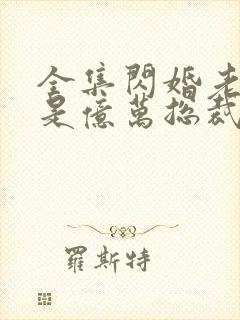 全集閃婚老
是億萬總裁
羅斯特